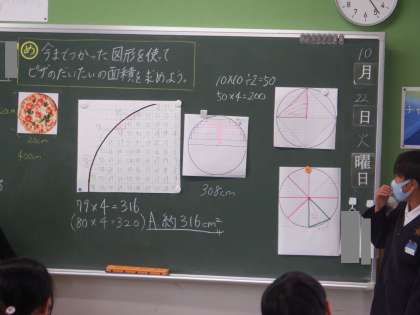 め 今までつかった図形を使って
ピザのだいたいの面積を求めよう。
20cm
20cm
400cm
10×10÷2=50
50×4=200
308cm
79×4=316
(80×4=320) A. 約316cm²
10
月
22
日
火
曜
日